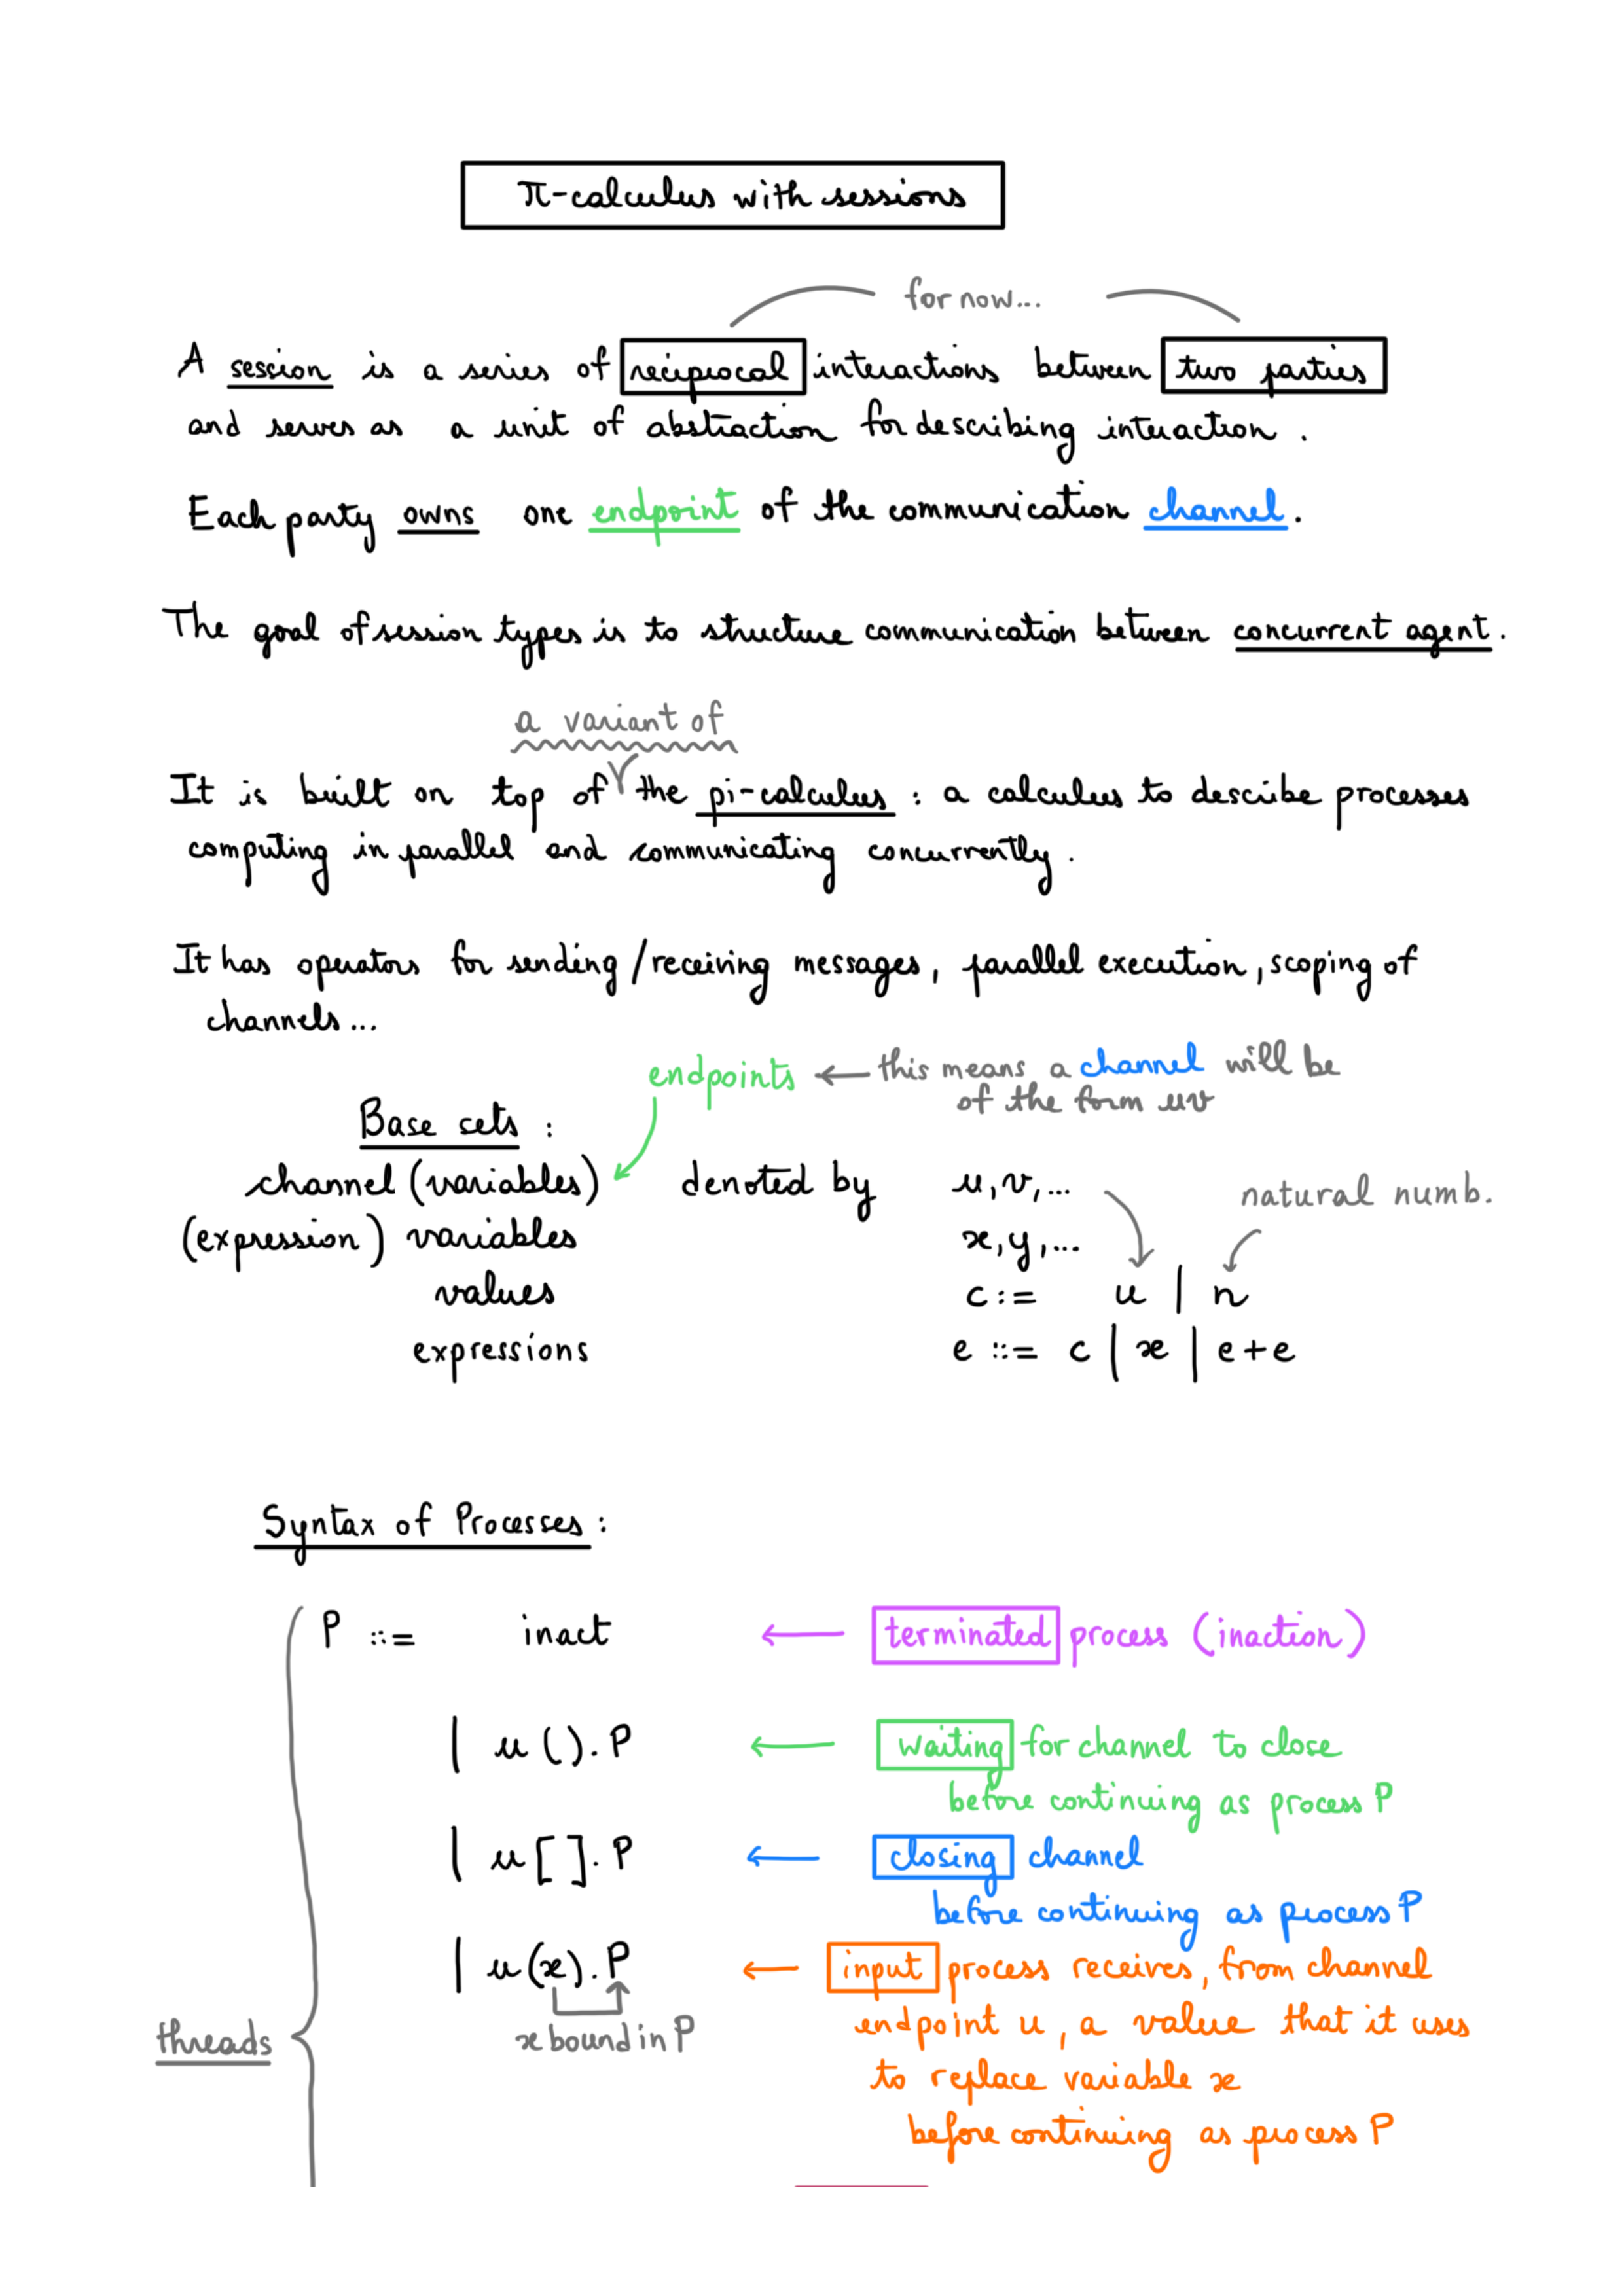 π-calculus with sessions
for now...
A session is a series of reciprocal interactions between two parties
and serves as a unit of abstraction for describing interaction.
Each party owns one endpoint of the communication channel.
The goal of session types is to structure communication between concurrent agent.
a variant of
It is built on top of the pi-calculus : a calculus to describe processes
computing in parallel and communicating concurrently.
It has operators for sending/receiving messages, parallel execution, scoping of
channels...
endpoints ← this means a channel will be
of the form uv
Base sets :
channel (variables) denoted by u,v,...
natural numb.
(expression) variables x,y,...
values c ::= u | n
expressions e ::= c | x | e+e
Syntax of Processes :
P ::= inact ← terminated process (inaction)
| u().P ← waiting for channel to close
before continuing as process P
| u[].P ← closing channel
before continuing as process P
| u(x).P ← input process receives, from channel
threads x bound in P endpoint u, a value that it uses
to replace variable x
before continuing as process P